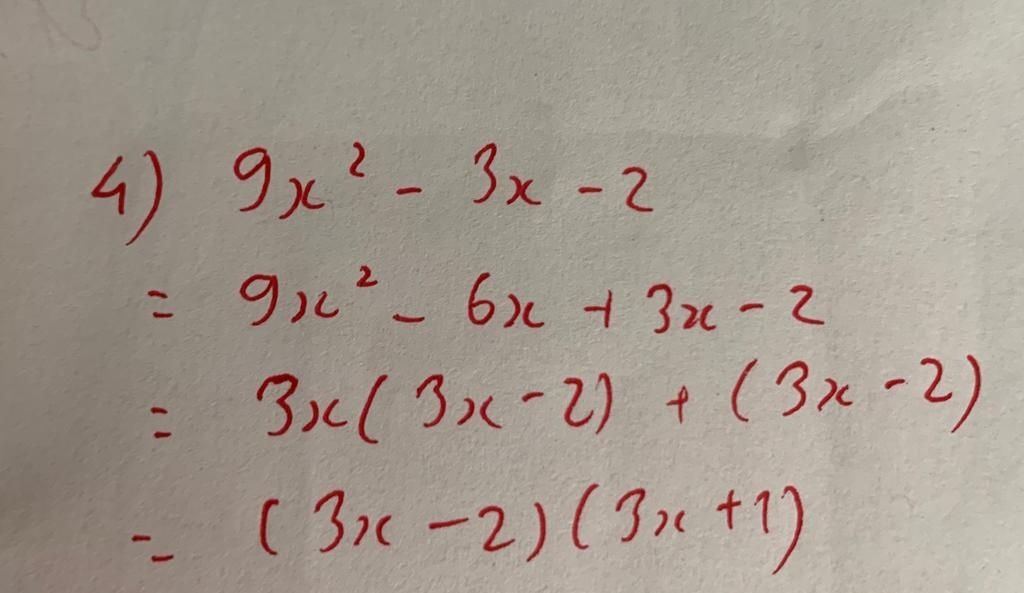 4) 9x² - 3x - 2
= 9x² - 6x + 3x - 2
= 3x(3x - 2) + (3x - 2)
= (3x - 2)(3x + 1)